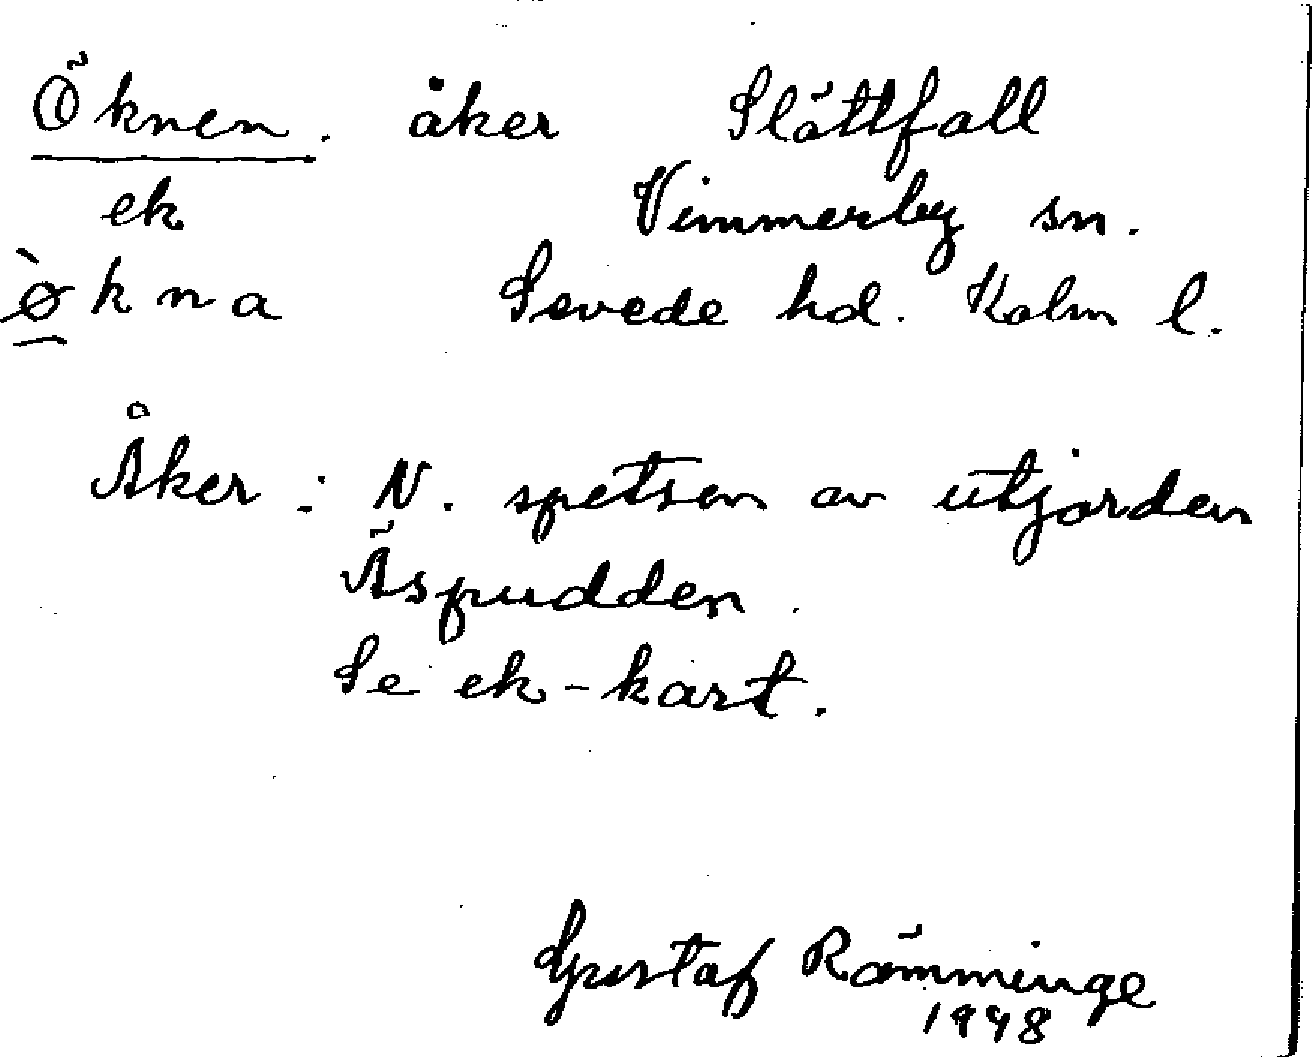 Öknen. åker Slättfall
ek Vimmerby sn.
ø̀kna Sevede hd. Kalm l.
Åker: N. spetsen av utjorden
Äspudden.
Se ek-kart.
Gustaf Rämminge
1948